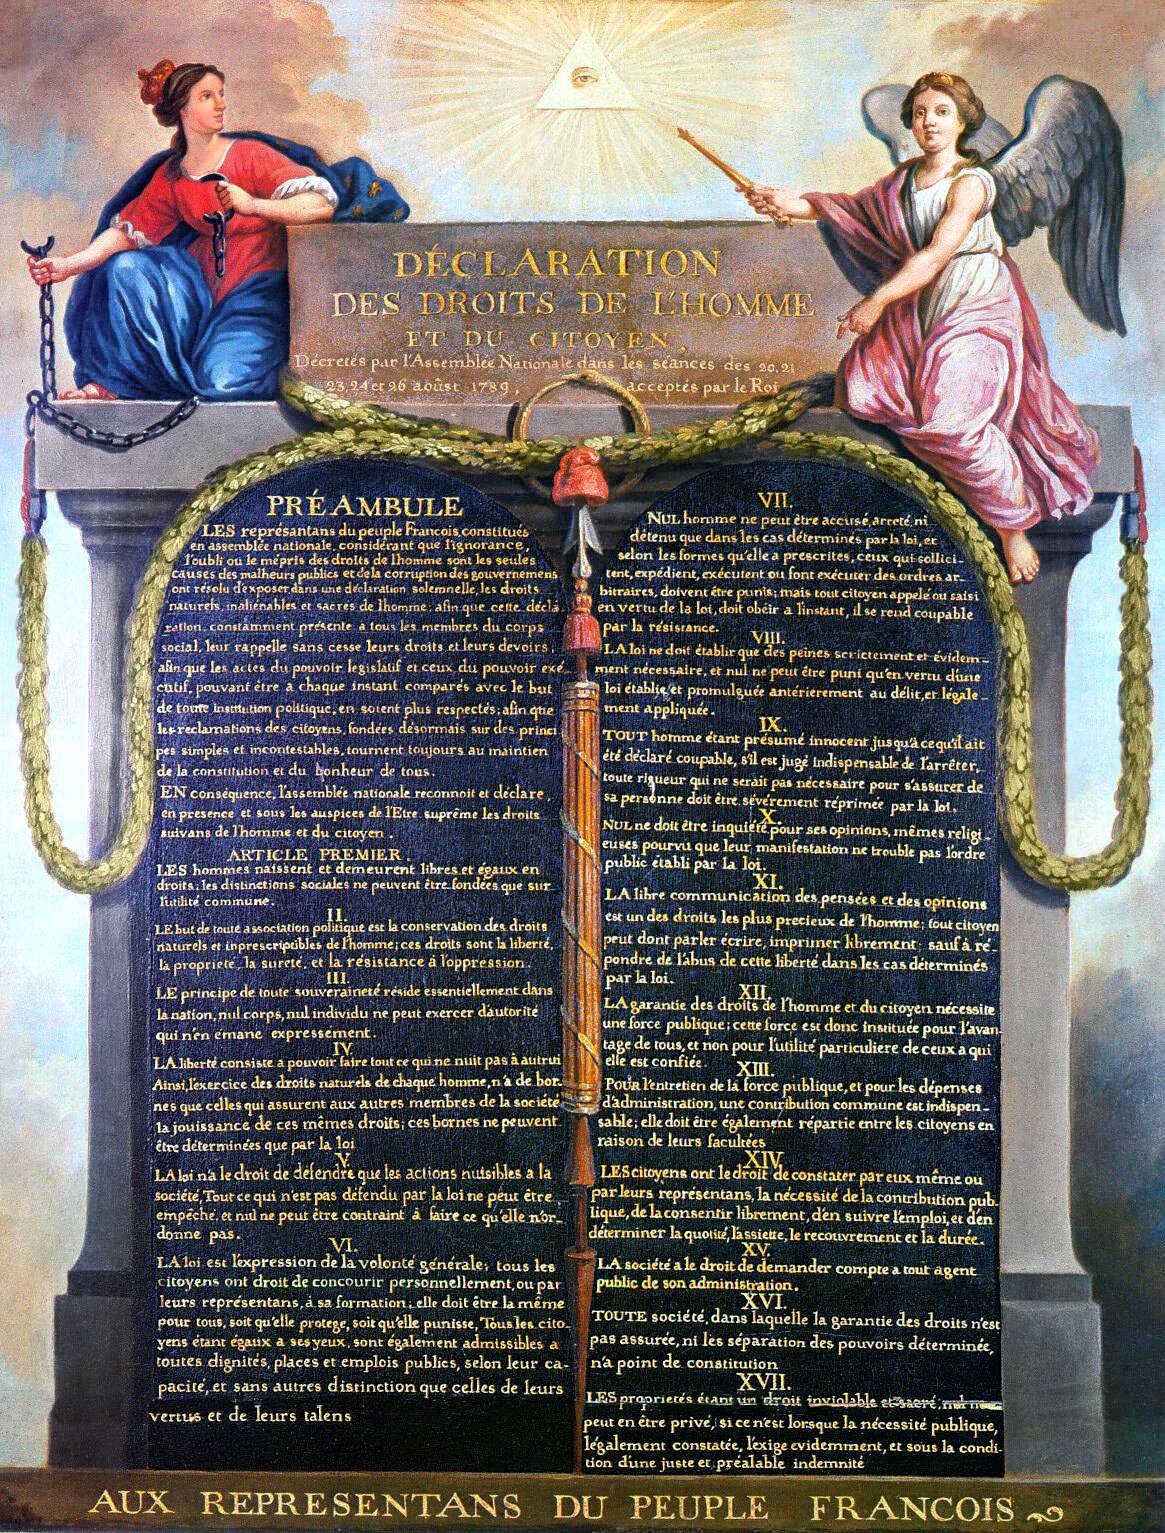 DÉCLARATION
DES DROITS DE L'HOMME
ET DU CITOYEN,
Décretés par l'Assemblée Nationale dans les séances des 20, 21
23, 24 et 26 août 1789, acceptés par le Roi
PRÉAMBULE
LES représantans du peuple Francois, constitués
en assemblée nationale, considérant que l'ignorance,
l'oubli ou le mépris des droits de l'homme sont les seules
causes des malheurs publics et de la corruption des gouvernemens
ont résolu d'exposer dans une déclaration solemnelle, les droits
naturels, inaliénables et sacrés de l'homme; afin que cette décla
ration, constamment présente a tous les membres du corps
social, leur rappelle sans cesse leurs droits et leurs devoirs;
afin que les actes du pouvoir législatif et ceux du pouvoir exé
cutif, pouvant être a chaque instant comparés avec le but
de toute institution politique, en soient plus respectés; afin que
les reclamations des citoyens, fondées désormais sur des princi
pes simples et incontestables, tournent toujours au maintien
de la constitution et du bonheur de tous.
EN conséquence, l'assemblée nationale reconnoit et déclare,
en presence et sous les auspices de l'Etre suprême les droits
suivans de l'homme et du citoyen.
ARTICLE PREMIER.
LES hommes naissent et demeurent libres et égaux en
droits; les distinctions sociales ne peuvent être fondées que sur
l'utilité commune.
II.
LE but de toute association politique est la conservation des droits
naturels et inprescriptibles de l'homme; ces droits sont la liberté,
la propriété, la sureté, et la résistance à l'oppression.
III.
LE principe de toute souveraineté réside essentiellement dans
la nation, nul corps, nul individu ne peut exercer d'autorité
qui n'en emane expressement.
IV.
LA liberté consiste a pouvoir faire tout ce qui ne nuit pas à autrui
Ainsi, l'exercice des droits naturels de chaque homme, n'a de bor-
nes que celles qui assurent aux autres membres de la société
la jouissance de ces mêmes droits; ces bornes ne peuvent
être déterminées que par la loi
V.
LA loi n'a le droit de défendre que les actions nuisibles a la
société, Tout ce qui n'est pas défendu par la loi ne peut être
empêché, et nul ne peut être contraint à faire ce qu'elle n'or-
donne pas.
VI.
LA loi est l'expression de la volonté générale; tous les
citoyens ont droit de concourir personnellement, ou par
leurs représentans, à sa formation; elle doit être la même
pour tous, soit qu'elle protege, soit qu'elle punisse, Tous les cito-
yens étant égaux a ses yeux, sont également admissibles a
toutes dignités, places et emplois publics, selon leur ca-
pacité, et sans autres distinction que celles de leurs
vertus et de leurs talens
VII.
NUL homme ne peut être accusé, arreté, ni
détenu que dans les cas déterminés par la loi, et
selon les formes qu'elle a prescrites, ceux qui sollici-
tent, expédient, exécutent ou font exécuter des ordres ar-
bitraires, doivent être punis; mais tout citoyen appelé ou saisi
en vertu de la loi, doit obéir a l'instant, il se rend coupable
par la résistance.
VIII.
LA loi ne doit établir que des peines strictement et évidem-
ment nécessaire, et nul ne peut être puni qu'en vertu d'une
loi établie et promulguée antérierement au délit, et légale-
ment appliquée.
IX.
TOUT homme étant présumé innocent jusqu'a ce qu'il ait
été déclaré coupable, s'il est jugé indispensable de l'arrêter,
toute rigueur qui ne serait pas nécessaire pour s'assurer de
sa personne doit être sévérement réprimée par la loi.
X.
NUL ne doit être inquiété pour ses opinions, mêmes religi-
euses pourvu que leur manifestation ne trouble pas l'ordre
public établi par la loi.
XI.
LA libre communication des pensées et des opinions
est un des droits les plus precieux de l'homme; tout citoyen
peut dont parler écrire, imprimer librement; sauf à ré-
pondre de l'abus de cette liberté dans les cas déterminés
par la loi.
XII.
LA garantie des droits de l'homme et du citoyen nécessite
une force publique; cette force est donc instituée pour l'avan-
tage de tous, et non pour l'utilité particuliere de ceux a qui
elle est confiée.
XIII.
POUR l'entretien de la force publique, et pour les dépenses
d'administration, une contribution commune est indispen-
sable; elle doit être également répartie entre les citoyens en
raison de leurs facultées
XIV.
LES citoyens ont le droit de constater par eux même ou
par leurs représentans, la nécessité de la contribution pub-
lique, de la consentir librement, d'en suivre l'emploi, et d'en
déterminer la quotité, l'assiette, le recouvrement et la durée.
XV.
LA société a le droit de demander compte a tout agent
public de son administration.
XVI.
TOUTE société, dans laquelle la garantie des droits n'est
pas assurée, ni les séparation des pouvoirs déterminée,
n'a point de constitution
XVII.
LES proprietés étant un droit inviolable et sacré, nul ne
peut en être privé, si ce n'est lorsque la nécessité publique,
légalement constatée, l'exige evidemment, et sous la condi-
tion d'une juste et préalable indemnité
AUX REPRESENTANS DU PEUPLE FRANCOIS